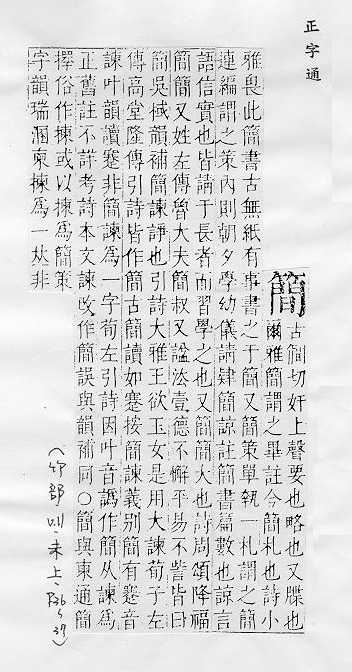 正字通
簡
古僩切奸上聲要也略也又牒也
爾雅簡謂之畢註今簡札也詩小
雅畏此簡書古無紙有事書之于簡又簡策單執一札謂之簡
連編謂之策內則朝夕學幼儀請肄簡諒註簡書篇數也諒言
語信實也皆請于長者而習學之也又簡簡大也詩周頌降福
簡簡又姓左傳魯大夫簡叔又諡法壹德不懈平易不訾皆曰
簡吳棫韻補簡諫諍也引詩大雅王欲玉女是用大諫荀子左
傳高堂隆傳引詩皆作簡古簡讀如蹇按簡諫義別簡有蹇音
諫叶韻讀蹇非簡諫為一字荀左引詩因叶音譌作簡从諫為
正舊註不詳考詩本文諫改作簡誤與韻補同○簡與柬通簡
擇俗作揀或以揀為簡策
字韻瑞溷柬揀為一𠀤非
（竹部 未上 P36 37）